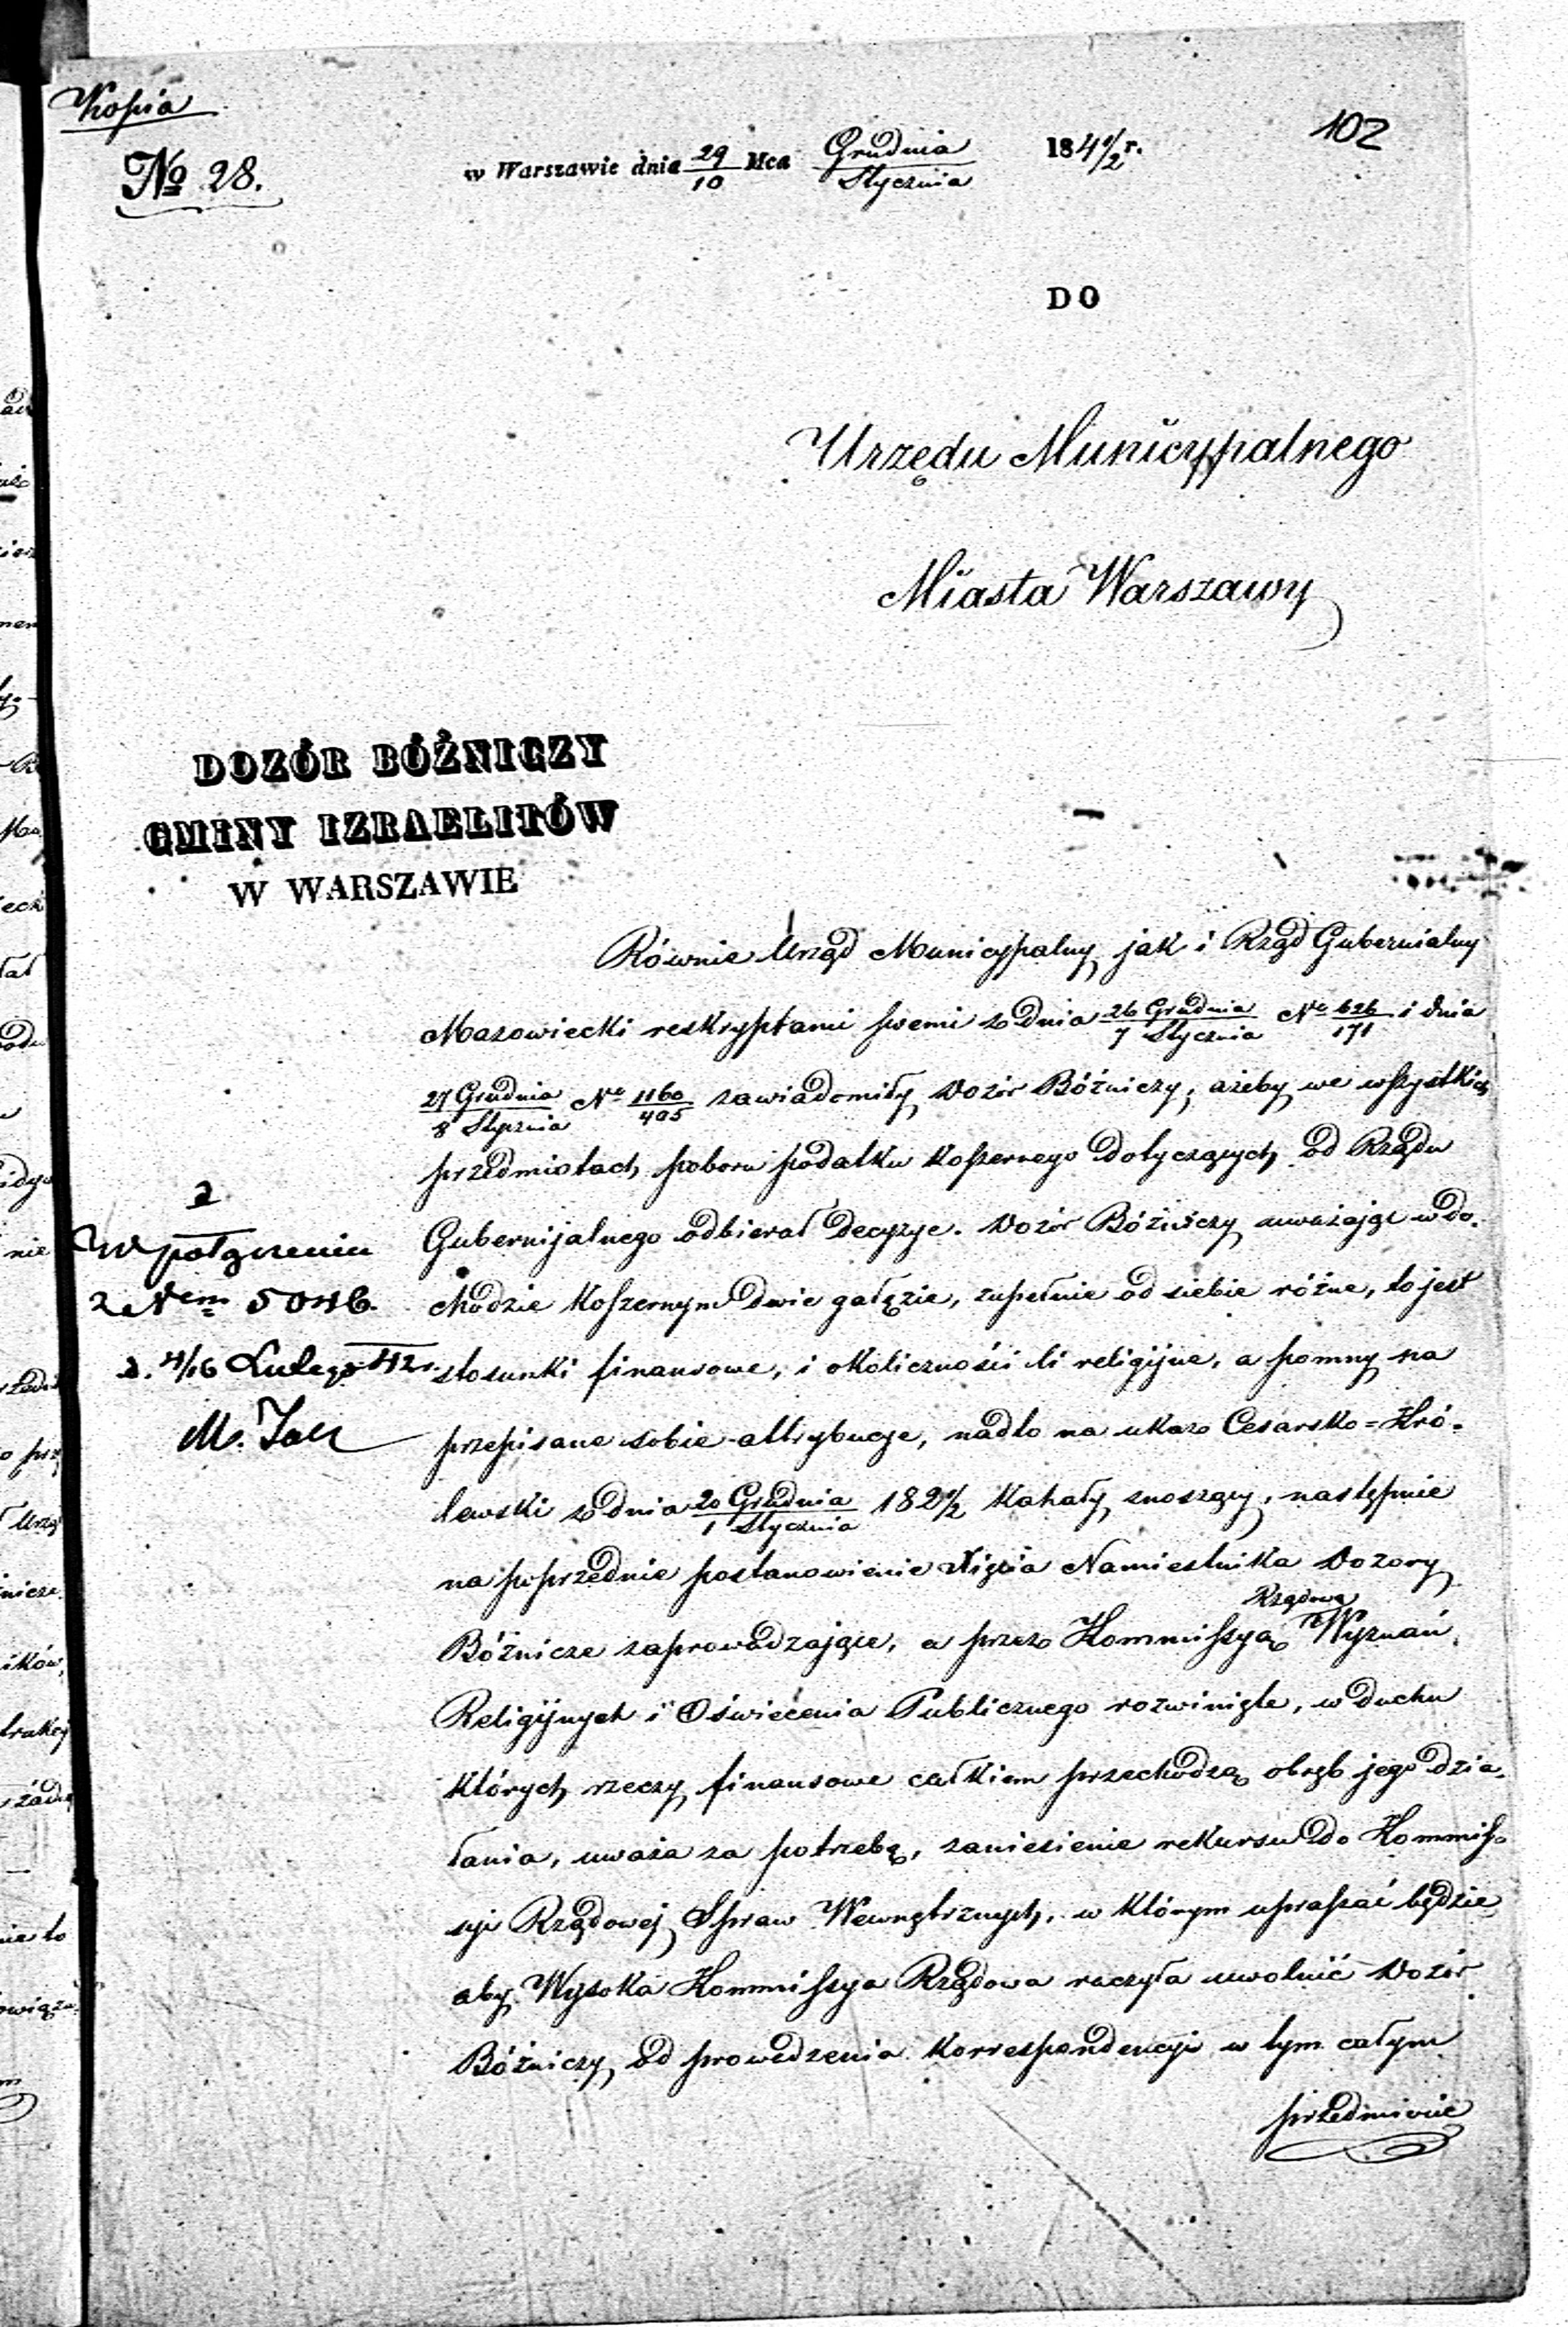 Kopia
102
No 28.
w Warszawie dnia 29/10 Mca Grudnia/Stycznia 184 1/2 r.
DO
Urzędu Municypalnego
Miasta Warszawy
DOZÓR BÓŻNICZY
GMINY IZRAELITÓW
W WARSZAWIE
Równie Urząd Municypalny jak i Rząd Gubernialny
Mazowiecki reskryptami swemi z dnia 26 Grudnia/7 Stycznia No 626/171 i dnia
27 Grudnia/8 Stycznia No 1160/405 zawiadomiły Dozór Bóźniczy, ażeby we wszystkich
przedmiotach poboru podatku koszernego dotyczących od Rządu
Gubernijalnego odbierał decyzye. Dozór Bóźniczy uważając w do-
chodzie koszernym dwie gałęzie, zupełnie od siebie różne, to jest
stosunki finansowe, i okoliczności li religijne, a pomny na
przepisane sobie attrybucye, nadto na ukaz Cesarsko-Kró-
lewski z dnia 20 Grudnia/1 Stycznia 182 1/2 Kahały znoszący, następnie
na poprzednie postanowienie Xięcia Namiestnika Dozory
Bóźnicze zaprowadzające, a przez Kommissyą Rządową Wyznań
Religijnych i Oświecenia Publicznego rozwinięte, w duchu
których rzeczy finansowe całkiem przechodzą obręb jego dzia-
łania, uważa za potrzebę, zaniesienie rekursu do Kommis-
syi Rządowej Spraw Wewnętrznych, w którym upraszać będzie
aby Wysoka Kommissya Rządowa raczyła uwolnić Dozór
Bóźniczy od prowadzenia korrespondencyi w tym całym
przedmiocie
2
W połączeniu
z Nem 5046.
d. 4/16 Lutego 42 r.